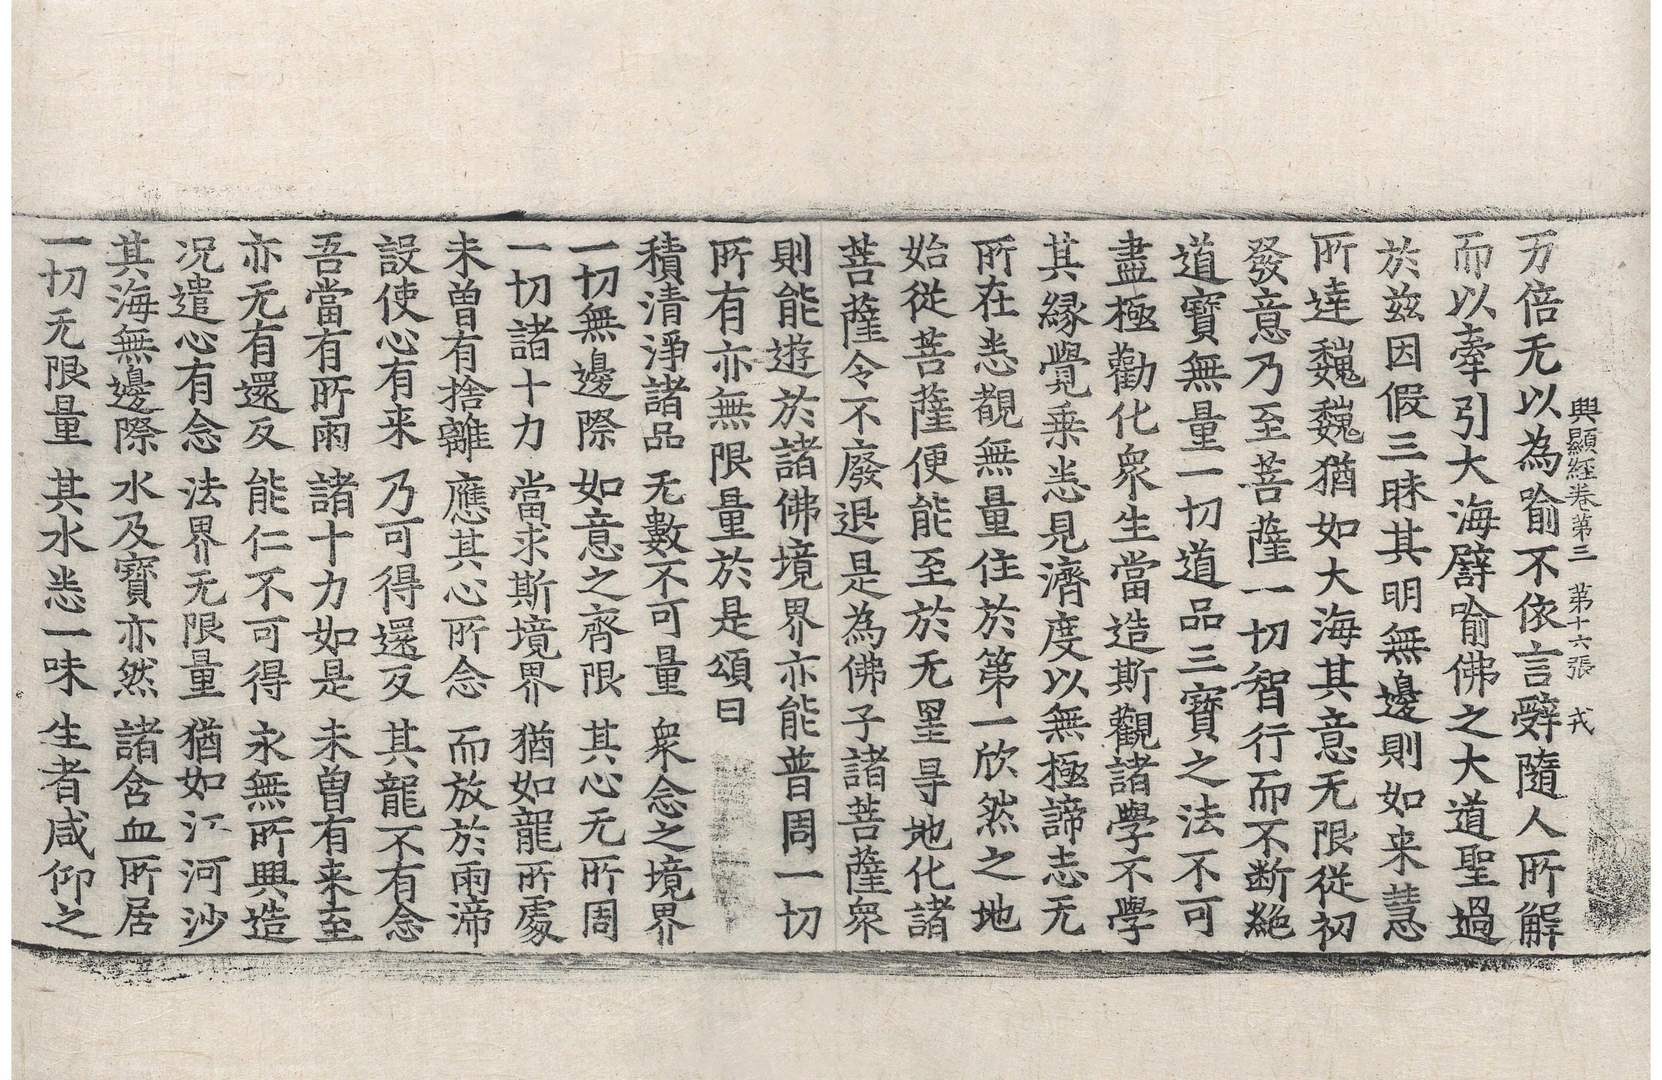 興顯經卷第三　第十六張　戎
万倍无以為喻不依言辭隨人所解
而以牽引大海譬喻佛之大道聖過
於茲因假三昧其明無邊則如来慧
所達巍巍猶如大海其意无限從初
發意乃至菩薩一切智行而不断絶
道寶無量一切道品三寶之法不可
盡極勸化衆生當造斯觀諸學不學
其縁覺乗悉見濟度以無極諦志无
所在悉覩無量住於第一欣然之地
始從菩薩便能至於无罣㝵地化諸
菩薩令不廢退是為佛子諸菩薩衆
則能遊於諸佛境界亦能普周一切
所有亦無限量於是頌曰
積清淨諸品　无數不可量　衆念之境界
一切無邊際　如意之齊限　其心无所周
一切諸十力　當求斯境界　猶如龍所處
未曽有捨離　應其心所念　而放於雨渧
設使心有来　乃可得還反　其龍不有念
吾當有所雨　諸十力如是　未曽有来至
亦无有還反　能仁不可得　永無所興造
况遣心有念　法界无限量　猶如江河沙
其海無邊際　水及寶亦然　諸含血所居
一切无限量　其水悉一味　生者咸仰之